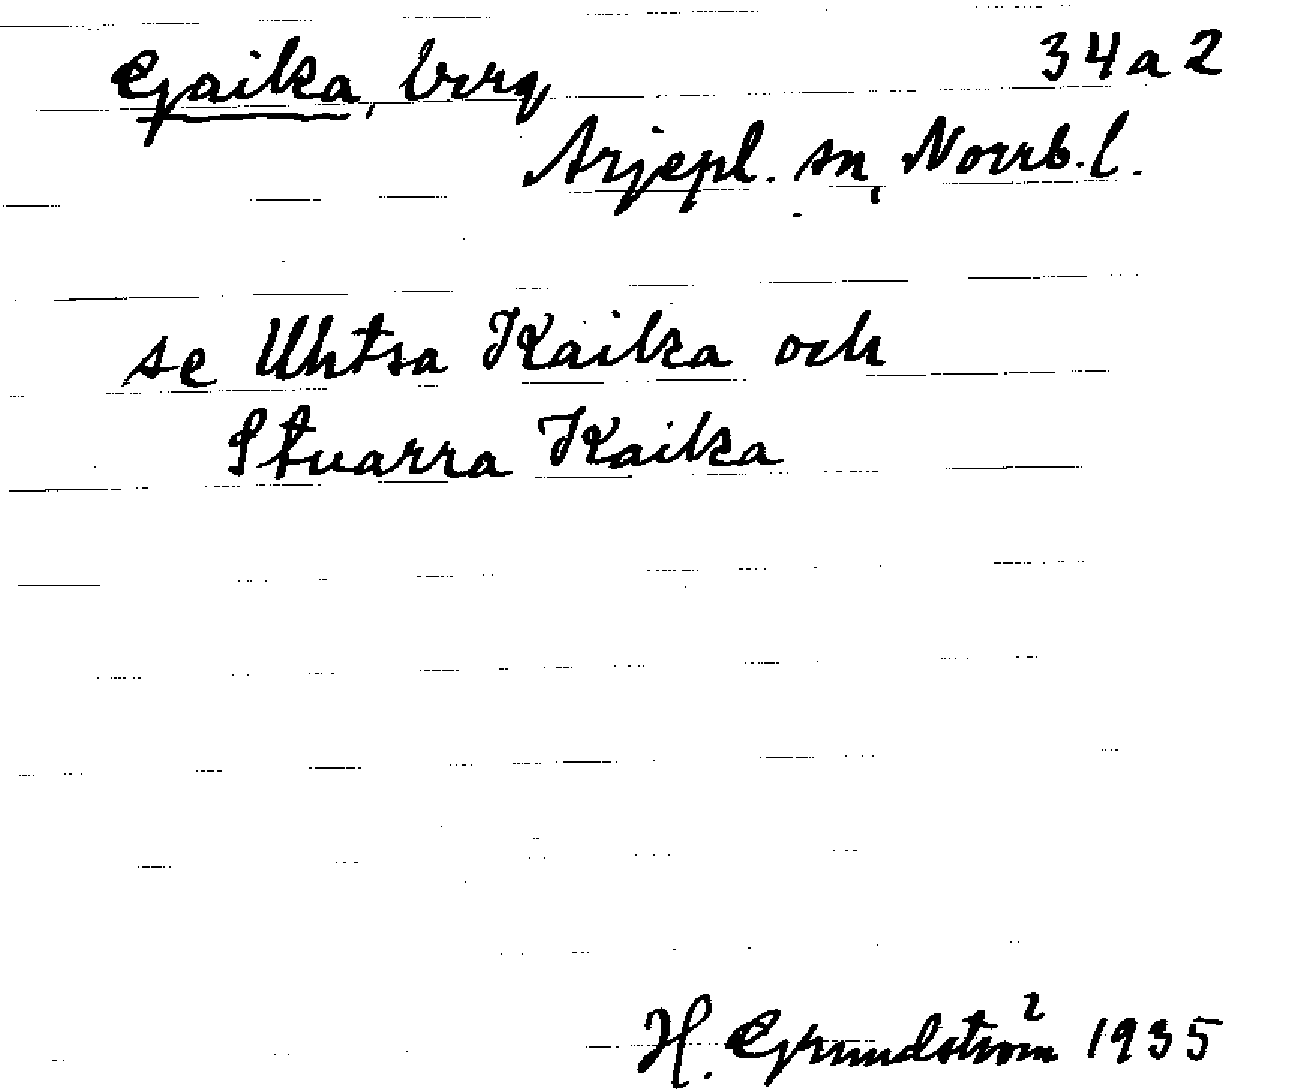 Gaika, berg 34a2
Arjepl. sn, Norrb. l.
se Uhtsa Kaika och
Stuarra Kaika
H. Grundström 1935